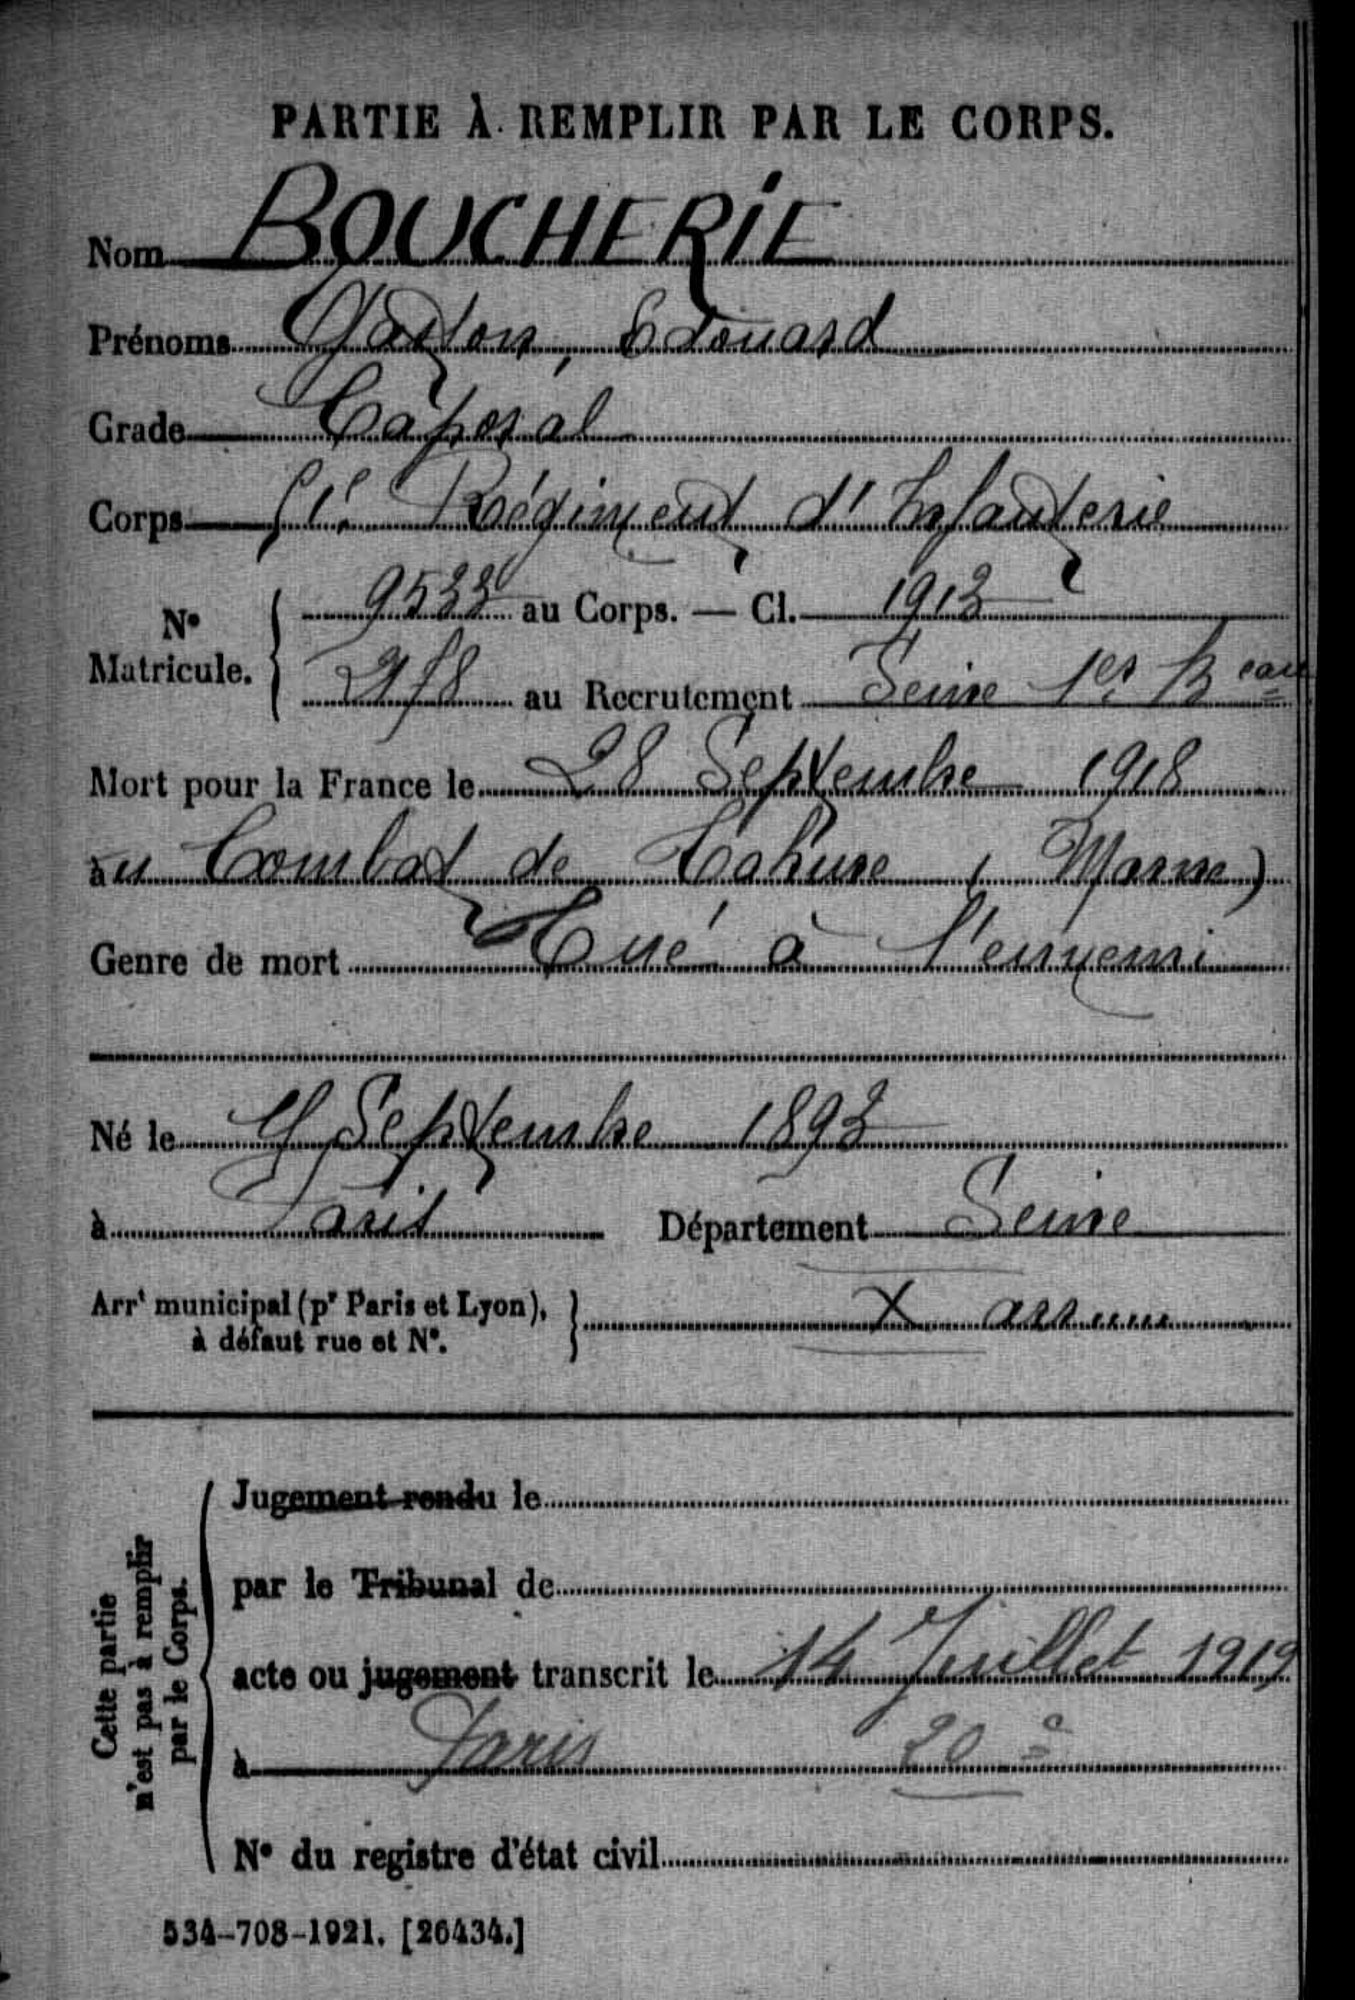 PARTIE À REMPLIR PAR LE CORPS.
Nom BOUCHERIE
Prénoms Gaston, Edouard
Grade Caporal
Corps 51e Régiment d'Infanterie
N° Matricule. 9533 au Corps. — Cl. 1913
au Recrutement Seine 1er Beau
Mort pour la France le 28 Septembre 1918
au Combat de Tahure (Marne)
Genre de mort Tué à l'ennemi
Né le Septembre 1893
à Paris Département Seine
Arrt municipal (pr Paris et Lyon), à défaut rue et N°. X arr
Cette partie n'est pas à remplir par le Corps.
Jugement rendu le
par le Tribunal de
acte ou jugement transcrit le 14 Juillet 1919
à Paris 20e
N° du registre d'état civil
534-708-1921. [26434.]